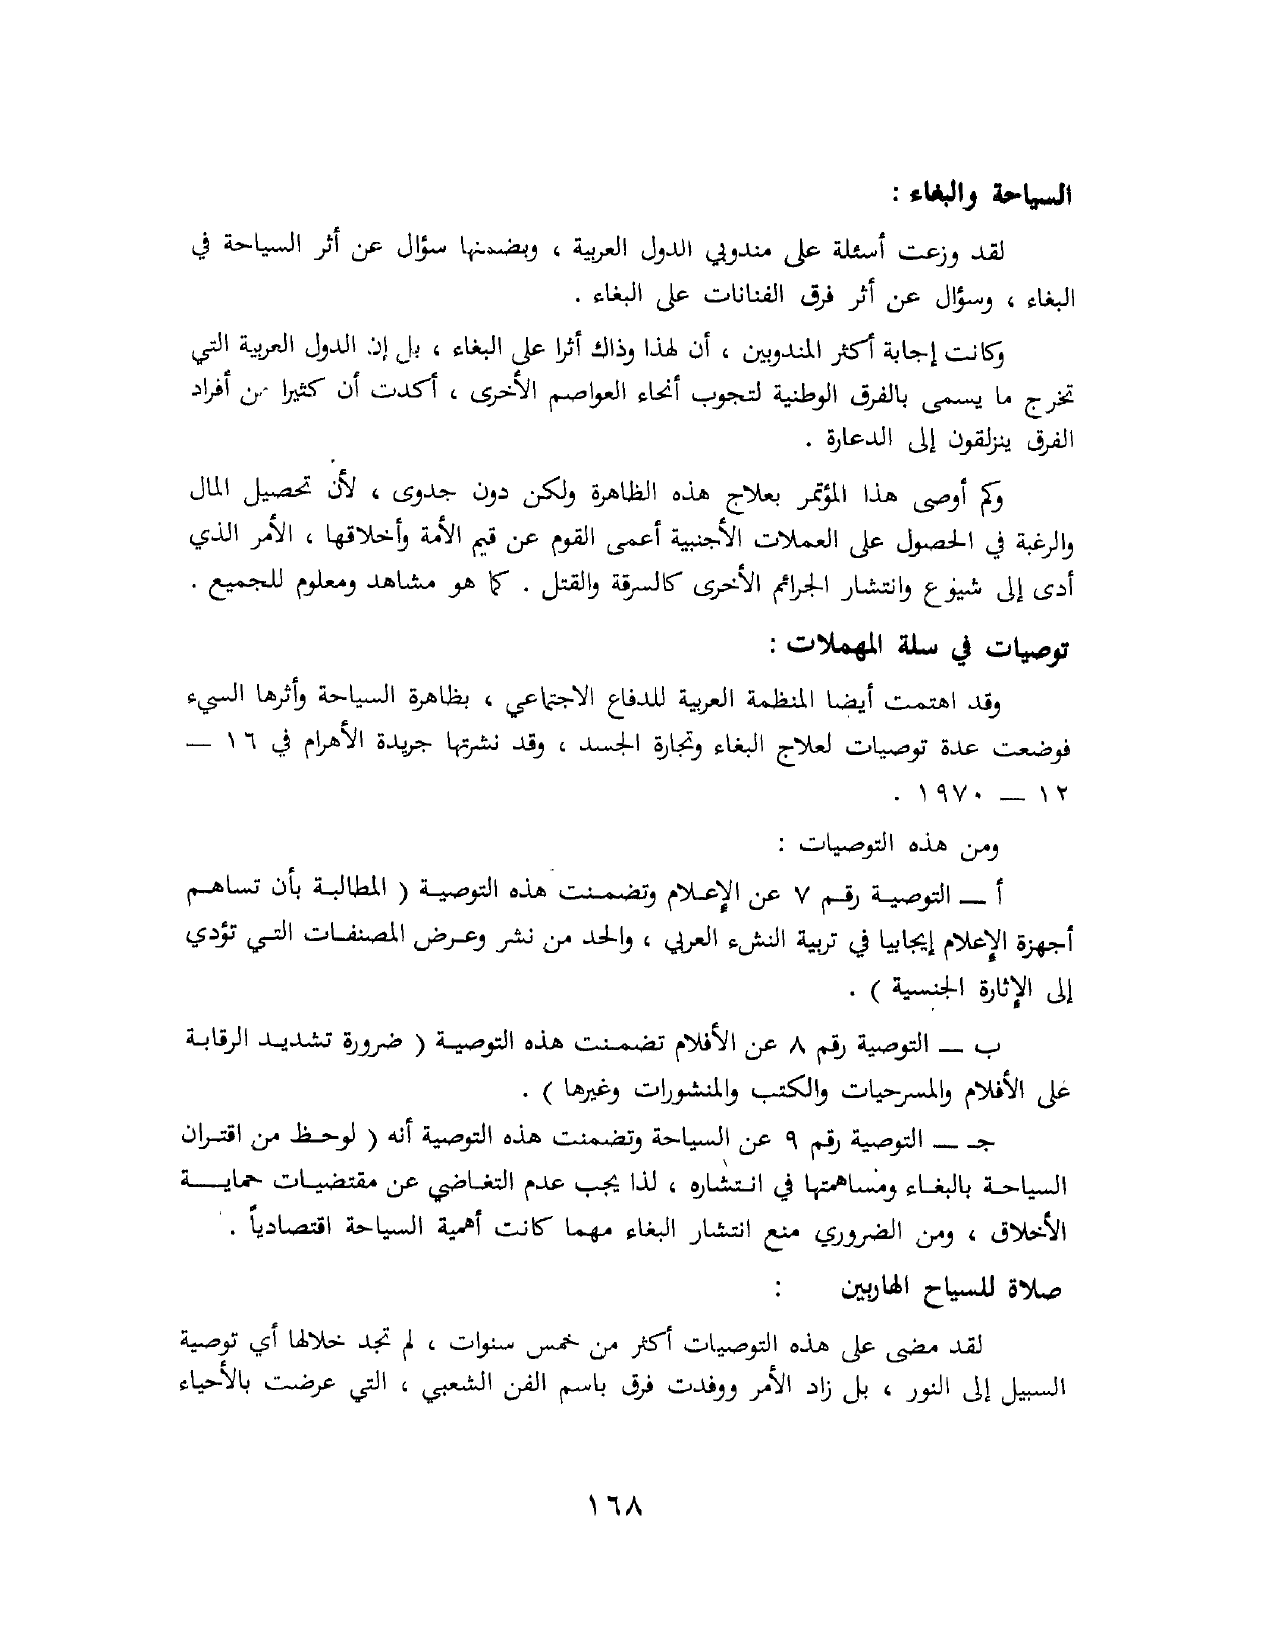 السياحة والبغاء :
لقد وزعت أسئلة على مندوبي الدول العربية ، وبضمنها سؤال عن أثر السياحة في
البغاء ، وسؤال عن أثر فرق الفنانات على البغاء .
وكانت إجابة أكثر المندوبين ، أن لهذا وذاك أثرا على البغاء ، بل إن الدول العربية التي
تخرج ما يسمى بالفرق الوطنية لتجوب أنحاء العواصم الأخرى ، أكدت أن كثيرا من أفراد
الفرق ينزلقون إلى الدعارة .
وكم أوصى هذا المؤتمر بعلاج هذه الظاهرة ولكن دون جدوى ، لأن تحصيل المال
والرغبة في الحصول على العملات الأجنبية أعمى القوم عن قيم الأمة وأخلاقها ، الأمر الذي
أدى إلى شيوع وانتشار الجرائم الأخرى كالسرقة والقتل . كما هو مشاهد ومعلوم للجميع .
توصيات في سلة المهملات :
وقد اهتمت أيضا المنظمة العربية للدفاع الاجتماعي ، بظاهرة السياحة وأثرها السيء
فوضعت عدة توصيات لعلاج البغاء وتجارة الجسد ، وقد نشرتها جريدة الأهرام في ١٦ —
١٢ — ١٩٧٠ .
ومن هذه التوصيات :
أ — التوصية رقم ٧ عن الإعلام وتضمنت هذه التوصية ( المطالبة بأن تساهم
أجهزة الإعلام إيجابيا في تربية النشء العربي ، والحد من نشر وعرض المصنفات التي تؤدي
إلى الإثارة الجنسية ) .
ب — التوصية رقم ٨ عن الأفلام تضمنت هذه التوصية ( ضرورة تشديد الرقابة
على الأفلام والمسرحيات والكتب والمنشورات وغيرها ) .
جـ — التوصية رقم ٩ عن السياحة وتضمنت هذه التوصية أنه ( لوحظ من اقتران
السياحة بالبغاء ومساهمتها في انتشاره ، لذا يجب عدم التغاضي عن مقتضيات حماية
الأخلاق ، ومن الضروري منع انتشار البغاء مهما كانت أهمية السياحة اقتصادياً .
صلاة للسياح الهاربين :
لقد مضى على هذه التوصيات أكثر من خمس سنوات ، لم تجد خلالها أي توصية
السبيل إلى النور ، بل زاد الأمر ووفدت فرق باسم الفن الشعبي ، التي عرضت بالأحياء
١٦٨